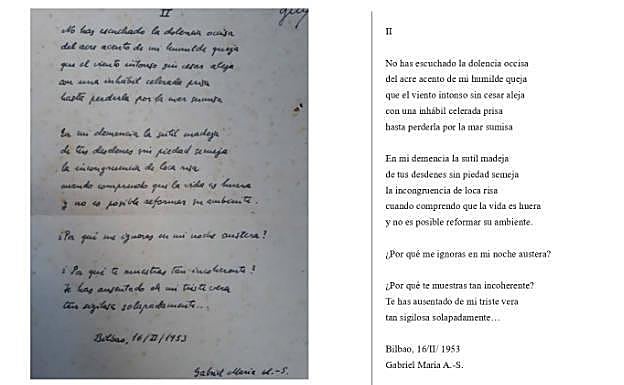 II
No has escuchado la dolencia occisa
del acre acento de mi humilde queja
que el viento intonso sin cesar aleja
con una inhábil celerada prisa
hasta perderla por la mar sumisa
En mi demencia la sutil madeja
de tus desdenes sin piedad semeja
la incongruencia de loca risa
cuando comprendo que la vida es huera
y no es posible reformar su ambiente.
¿Por qué me ignoras en mi noche austera?
¿Por qué te muestras tan incoherente?
Te has ausentado de mi triste vera
tan sigilosa solapadamente...
Bilbao, 16/II/1953
Gabriel María A.-S.
II
No has escuchado la dolencia occisa
del acre acento de mi humilde queja
que el viento intonso sin cesar aleja
con una inhábil celerada prisa
hasta perderla por la mar sumisa
En mi demencia la sutil madeja
de tus desdenes sin piedad semeja
la incongruencia de loca risa
cuando comprendo que la vida es huera
y no es posible reformar su ambiente.
¿Por qué me ignoras en mi noche austera?
¿Por qué te muestras tan incoherente?
Te has ausentado de mi triste vera
tan sigilosa solapadamente…
Bilbao, 16/II/ 1953
Gabriel María A.-S.